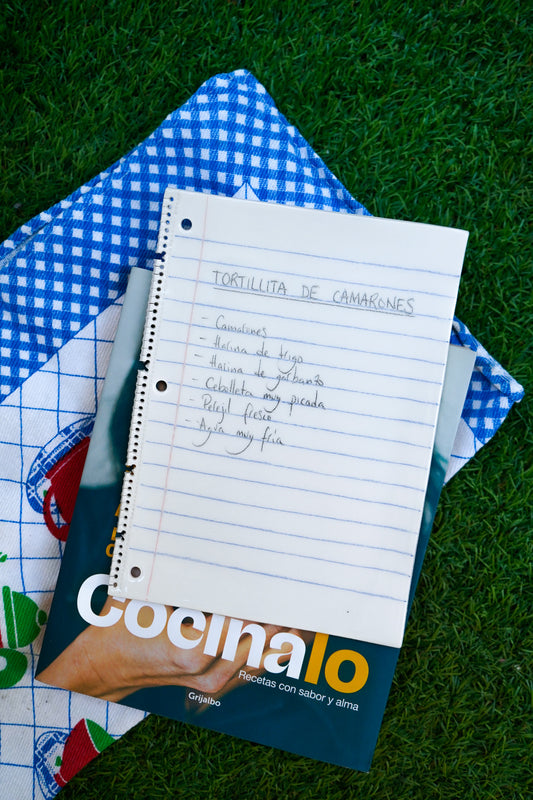 TORTILLITA DE CAMARONES
- Camarones
- Harina de trigo
- Harina de garbanzo
- Cebolleta muy picada
- Perejil fresco
- Agua muy fría
Cocinalo
Recetas con sabor y alma
Grijalbo